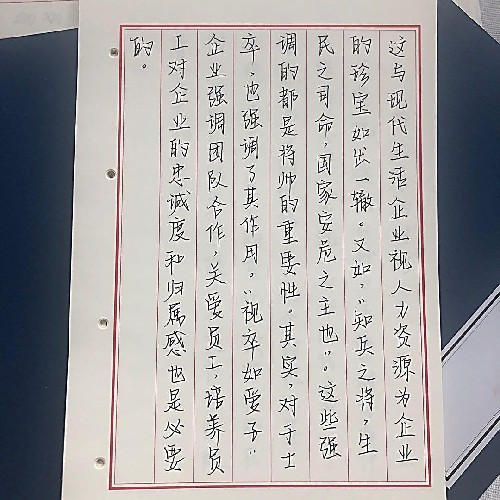 这与现代生活企业视人力资源为企业
的珍宝如出一辙。又如，“知兵之将，生
民之司命，国家安危之主也”。这些强
调的都是将帅的重要性。其实，对于士
卒，也强调了其作用。“视卒如爱子”
企业强调团队合作，关爱员工，培养员
工对企业的忠诚度和归属感也是必要
的。